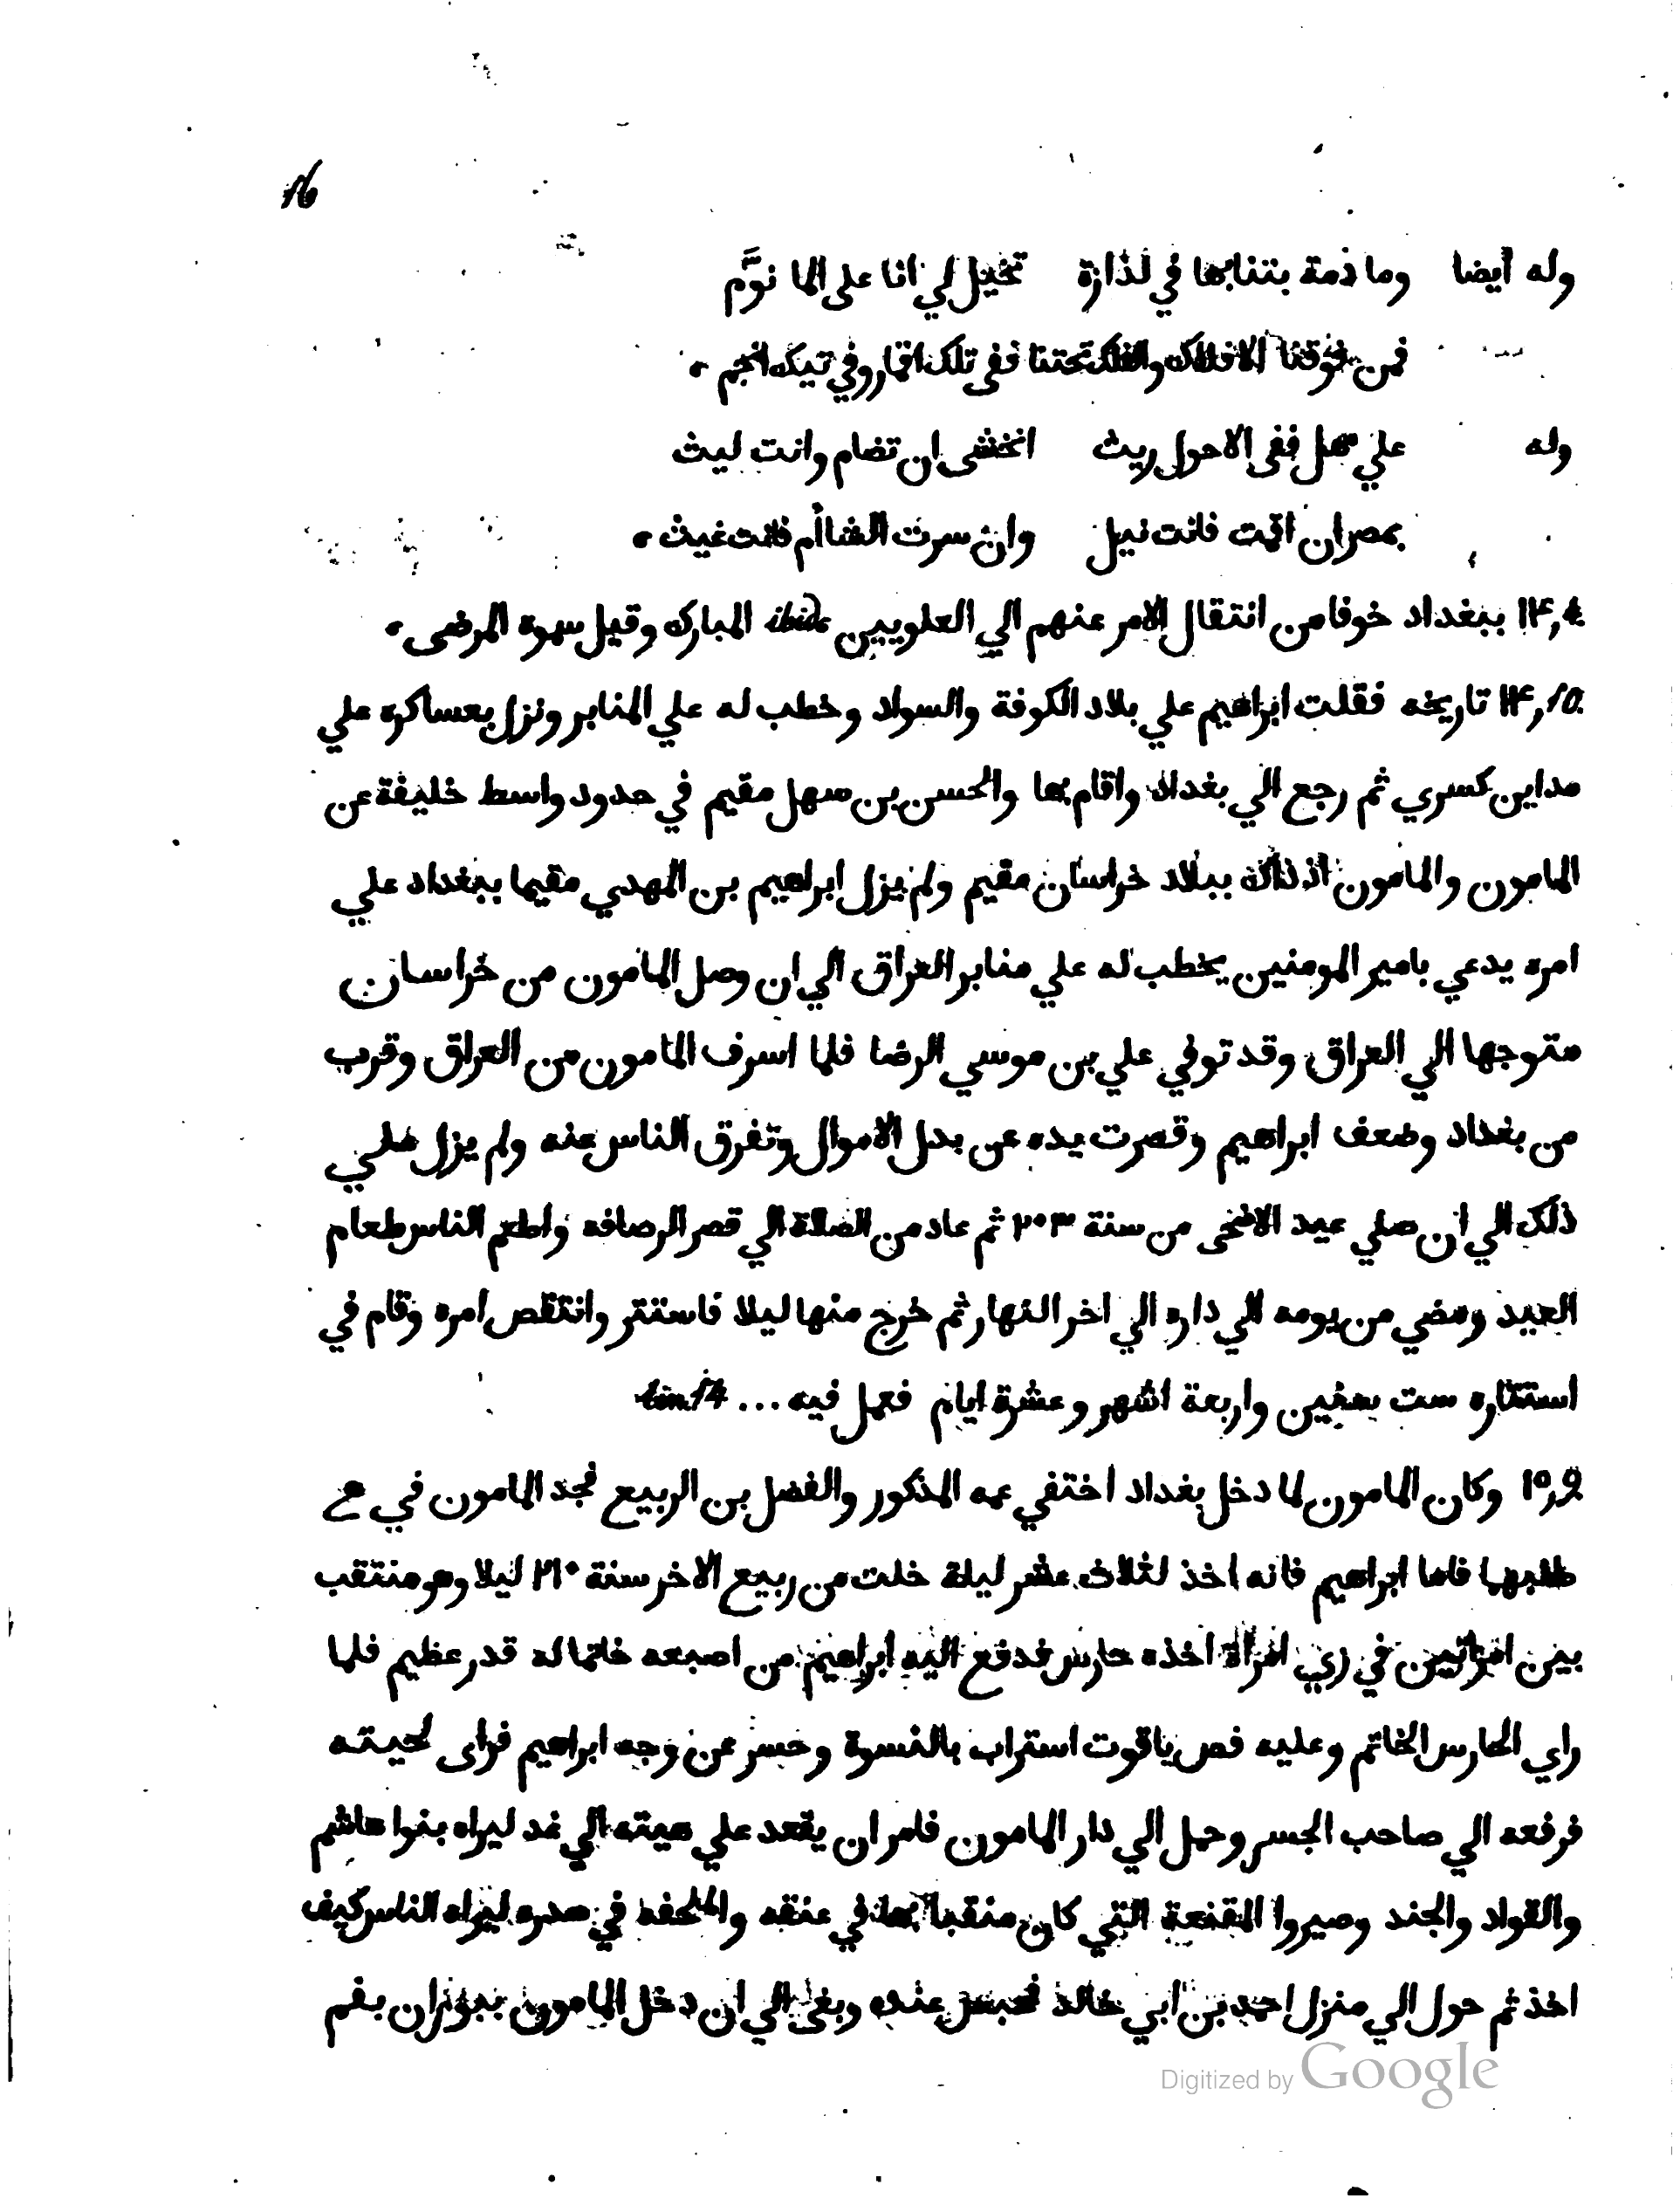 16
وله أيضا وما ذمة بتنابها في لذازة تخيل لي انا على الما نوَّم
فمن فوقنا الافلاك والفلك تحتنا ففى تلك اقمار وفي تيكه انجم ه
وله علي مهل ففى الاحول ريث اتخشى ان تضام وانت ليث
بمصر ان اقمت فانت نيل وان سرت الشاأم فانت غيث ه
14,4 ببغداد خوفا من انتقال الامر عنهم الي العلويين ibid. المبارك وقيل سموه المرضى ه
14,10 تاريخه فقلت ابراهيم علي بلاد الكوفة والسواد وخطب له علي المنابر ونزل بعساكره علي
مداين كسري ثم رجع الي بغداد واقام بها والحسن بن سهل مقيم في حدود واسط خليفة عن
المامون والمامون اذ ذاك ببلاد خراسان مقيم ولم يزل ابراهيم بن المهدي مقيما ببغداد علي
امره يدعي بامير المومنين يخطب له علي منابر العراق الي ان وصل المامون من خراسان
متوجها الي العراق وقد توفي علي بن موسي الرضا فلما اسرف المامون من العراق وقرب
من بغداد وضعف ابراهيم وقصرت يده عن بدل الاموال وتفرق الناس عنه ولم يزل علي
ذلك الي ان صلي عيد الاضحى من سنة ٢٠٣ ثم عاد من الصلاة الي قصر الرصافه واطعم الناس طعام
العيد ومضي من يومه الي داره الي اخر النهار ثم خرج منها ليلا فاستتر وانتقص امره وقام في
استتاره ست سنين واربعة اشهر وعشرة ايام فعمل فيه ... lin. 14
15,9 وكان المامون لما دخل بغداد اختفي عمه المذكور والفضل بن الربيع فجد المامون في
طلبهما فاما ابراهيم فانه اخذ لثلاث عشر ليلة خلت من ربيع الاخر سنة ٢١٠ ليلا وهو منتقب
بين امراتين في زي امرأة اخذه حارس فدفع اليه ابراهيم من اصبعه خاتما له قدر عظيم فلما
راي الحارس الخاتم وعليه فص ياقوت استراب بالنسوة وحسر عن وجه ابراهيم فراى لحيته
فرفعه الي صاحب الجسر وحمل الي دار المامون فامر ان يقعد علي هيته الي غد ليراه بنوا هاشم
والقواد والجند وصيروا المقنعة التي كان منقبا بها في عنقه والملحفه في صدره ليراه الناس كيف
اخذ ثم حول الي منزل احمد بن ابي خالد فحبس عنده وبقى الي ان دخل المامون ببوران بفم
Digitized by Google